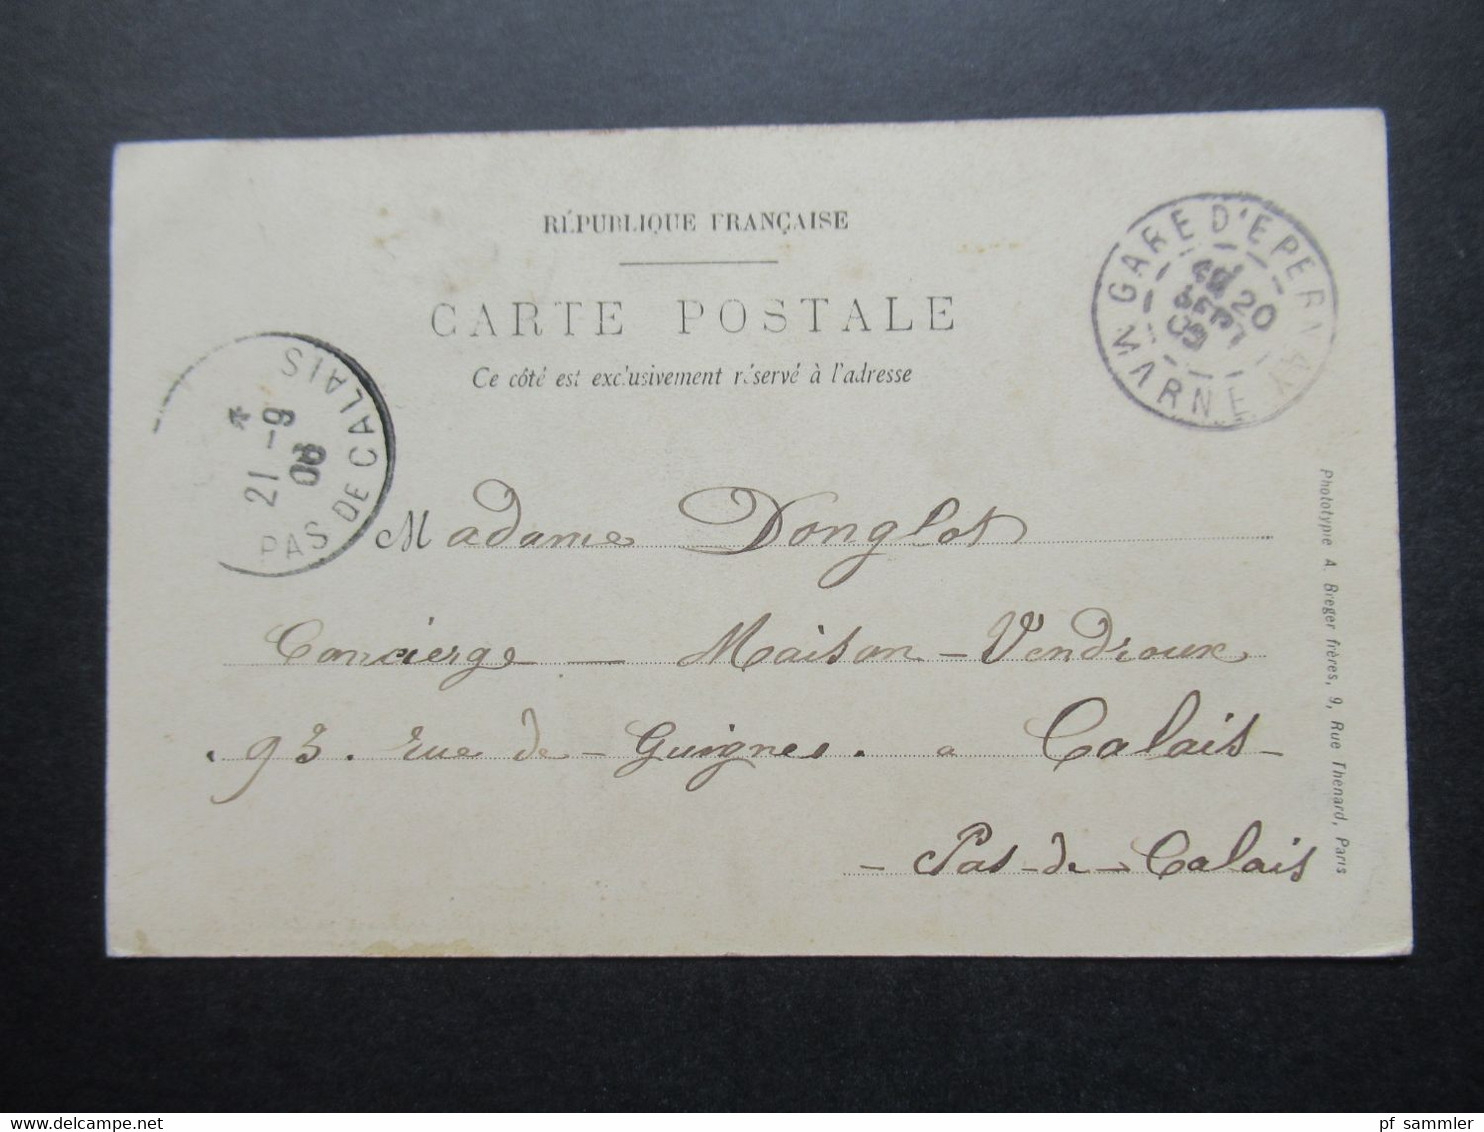 RÉPUBLIQUE FRANÇAISE
CARTE POSTALE
Ce côté est exclusivement réservé à l'adresse
GARE D'EPERNAY
20
SEPT
03
MARNE
*
21 - 9
03
PAS DE CALAIS
Madame Donglot
Concierge — Maison - Vendroux
. 93. rue de - Guignes. a Calais -
- Pas - de - Calais
Phototypie A. Breger frères, 9, Rue Thenard, Paris
pf_sammler